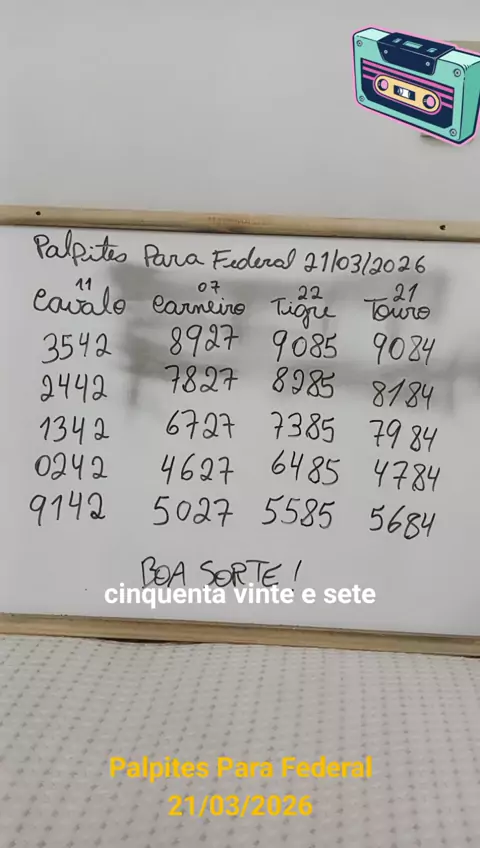 Palpites Para Federal 21/03/2026
11 07 22 21
Cavalo Carneiro Tigre Touro
3542 8927 9085 9084
2442 7827 8285 8184
1342 6727 7385 7984
0242 4627 6485 4784
9142 5027 5585 5684
BOA SORTE!
cinquenta vinte e sete
Palpites Para Federal
21/03/2026